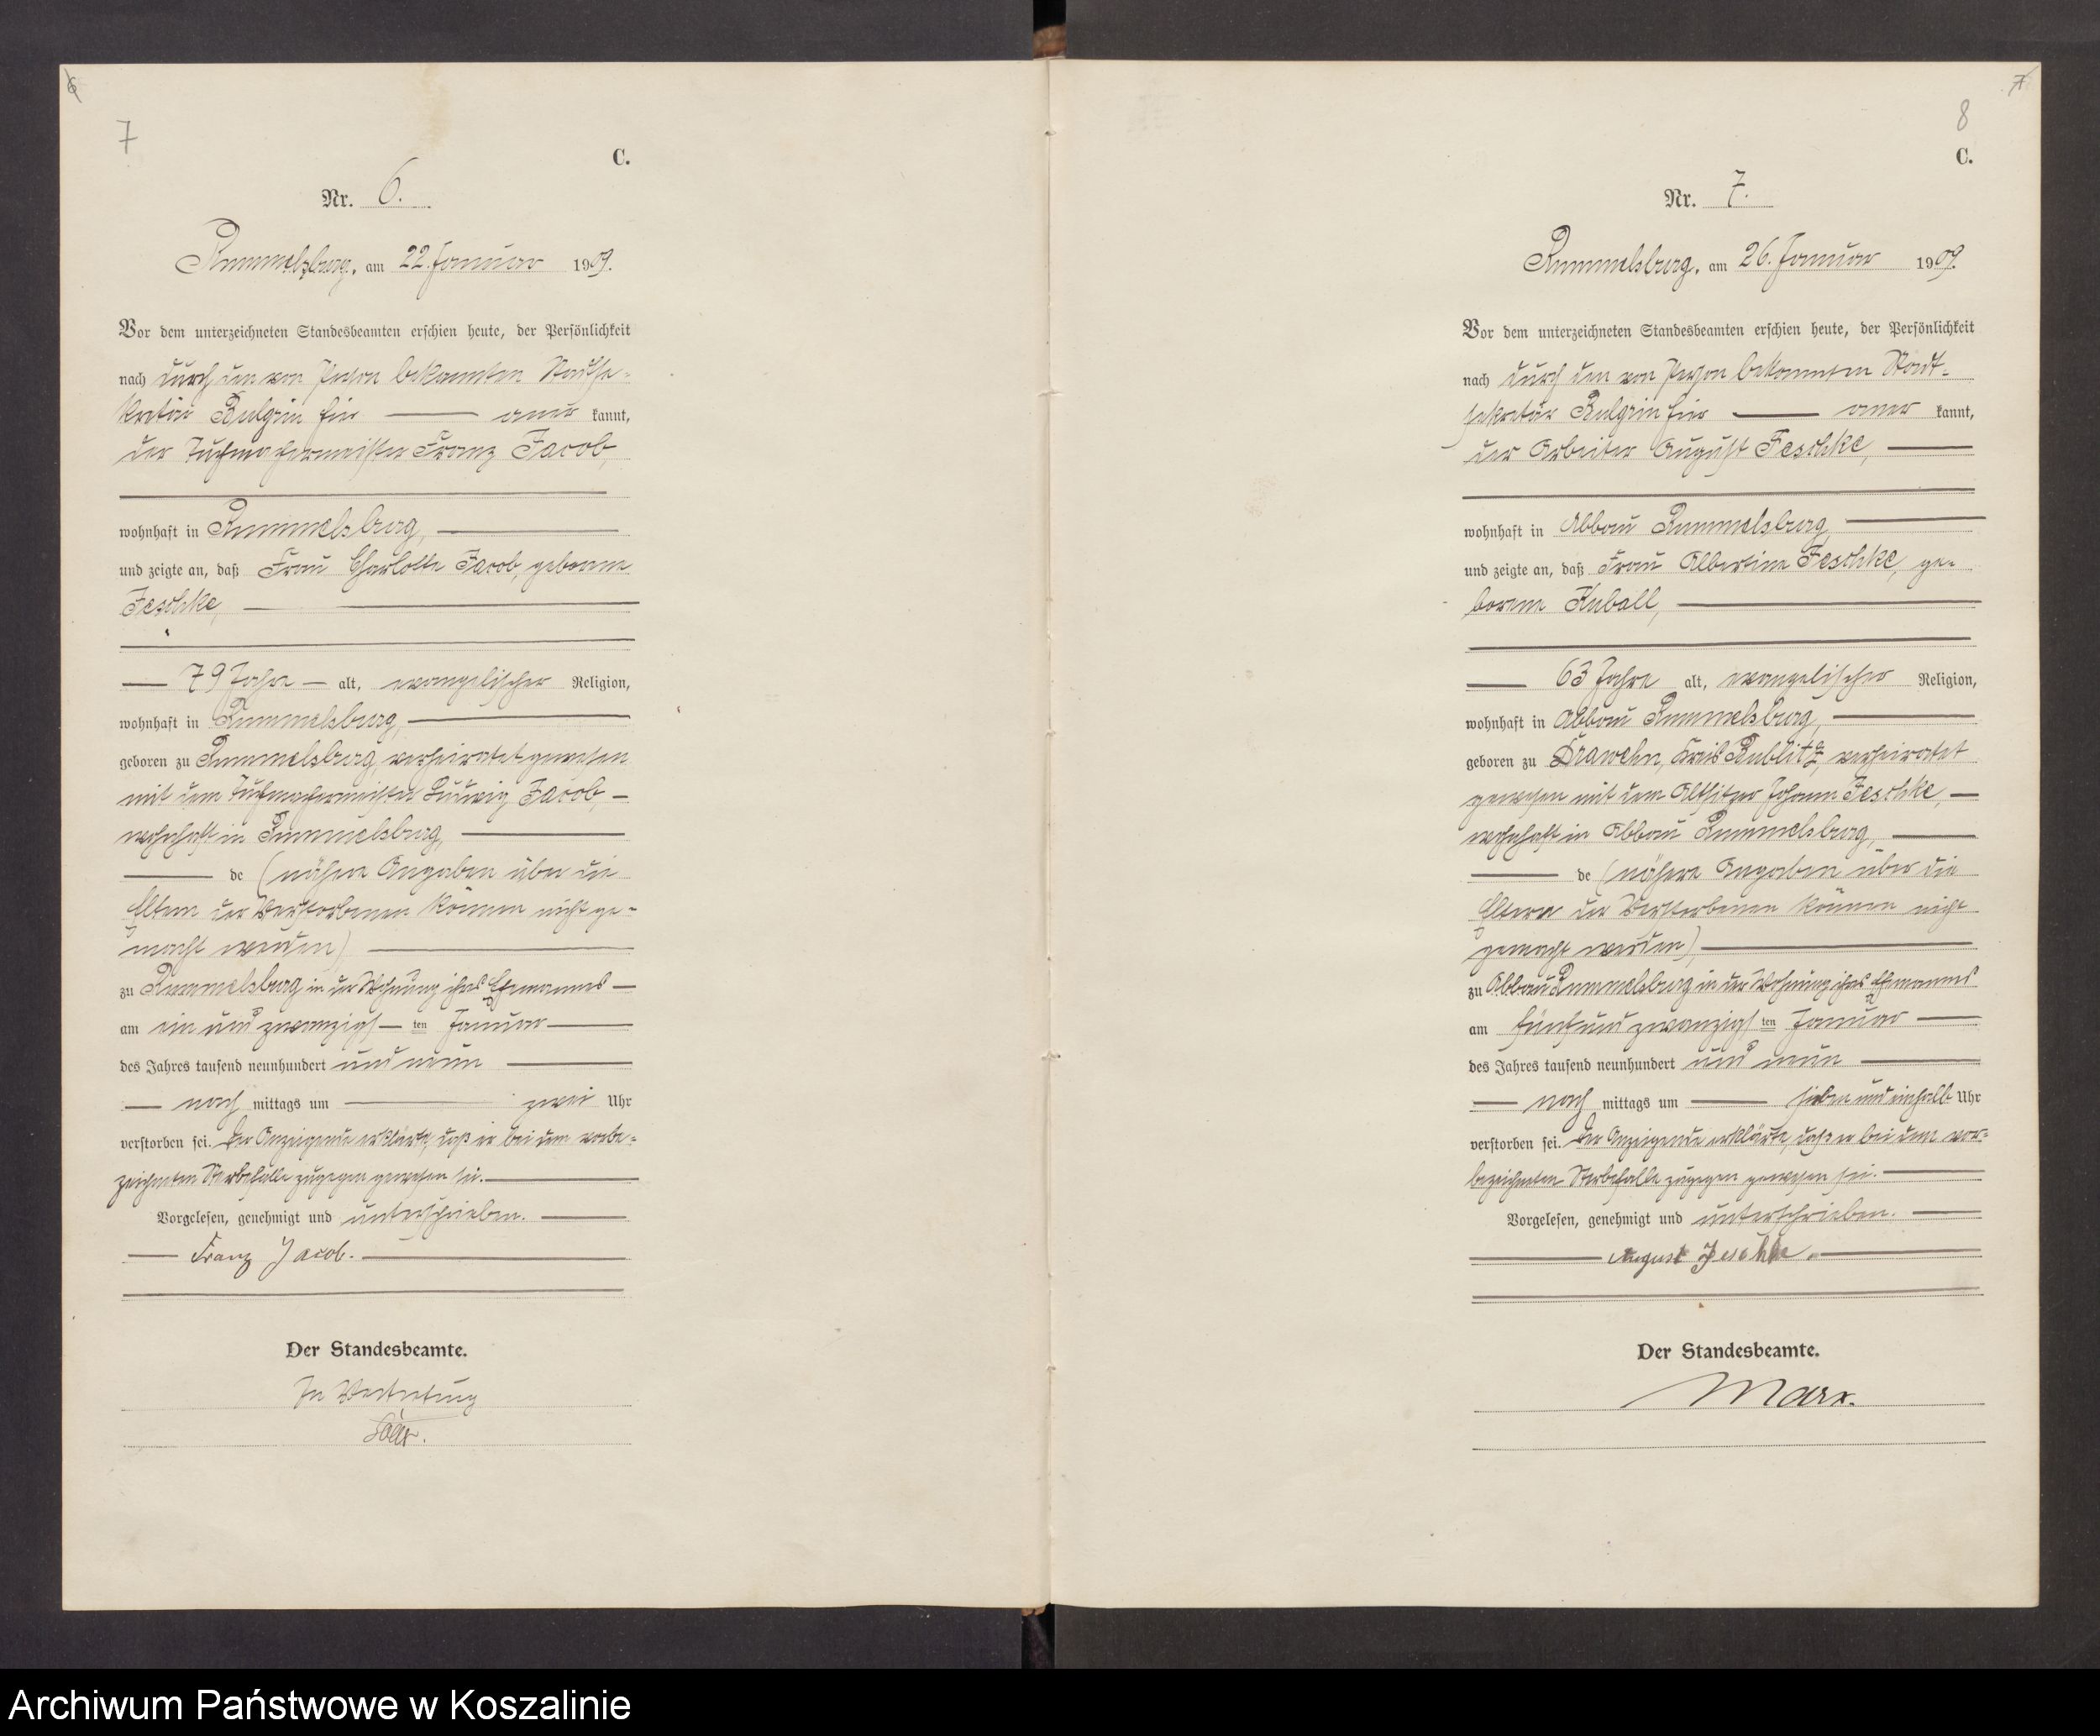 6
7
C.
Nr. 6.
Rummelsburg, am 22. Januar 1909.
Vor dem unterzeichneten Standesbeamten erschien heute, der Persönlichkeit
nach durch den von Person bekannten Stadtse-
kretär Bulgrin für aner kannt,
der Tuchmachermeister Franz Jacob,
wohnhaft in Rummelsburg,
und zeigte an, daß Frau Charlotte Jacob, geborene
Jeschke,
79 Jahre alt, evangelischer Religion,
wohnhaft in Rummelsburg,
geboren zu Rummelsburg, verheiratet gewesen
mit dem Tuchmachermeister Ludwig Jacob,
wohnhaft in Rummelsburg,
de (nähere Angaben über die
Eltern der Verstorbenen können nicht ge-
macht werden)
zu Rummelsburg in der Wohnung ihres Ehemannes
am ein und zwanzigsten Januar
des Jahres tausend neunhundert und neun
nach mittags um zwei Uhr
verstorben sei. Der Anzeigende erklärte, daß er bei dem vorbe-
zeichneten Sterbefalle zugegen gewesen sei.
Vorgelesen, genehmigt und unterschrieben.
Franz Jacob.
Der Standesbeamte.
In Vertretung
7
8
C.
Nr. 7.
Rummelsburg, am 26. Januar 1909.
Vor dem unterzeichneten Standesbeamten erschien heute, der Persönlichkeit
nach durch den von Person bekannten Stadt-
sekretär Bulgrin für aner kannt,
der Arbeiter August Jeschke,
wohnhaft in Abbau Rummelsburg,
und zeigte an, daß Frau Albertine Jeschke, ge-
borene Kuball,
63 Jahre alt, evangelischer Religion,
wohnhaft in Abbau Rummelsburg,
geboren zu Drawehn, Kreis Bublitz, verheiratet
gewesen mit dem Altsitzer Johann Jeschke,
wohnhaft in Abbau Rummelsburg,
de (nähere Angaben über die
Eltern der Verstorbenen können nicht
gemacht werden),
zu Abbau Rummelsburg in der Wohnung ihres Ehemannes
am fünfundzwanzigsten Januar
des Jahres tausend neunhundert und neun
nach mittags um sieben und einhalb Uhr
verstorben sei. Der Anzeigende erklärte, daß er bei dem vor-
bezeichneten Sterbefalle zugegen gewesen sei.
Vorgelesen, genehmigt und unterschrieben.
August Jeschke.
Der Standesbeamte.
Marx.
Archiwum Państwowe w Koszalinie